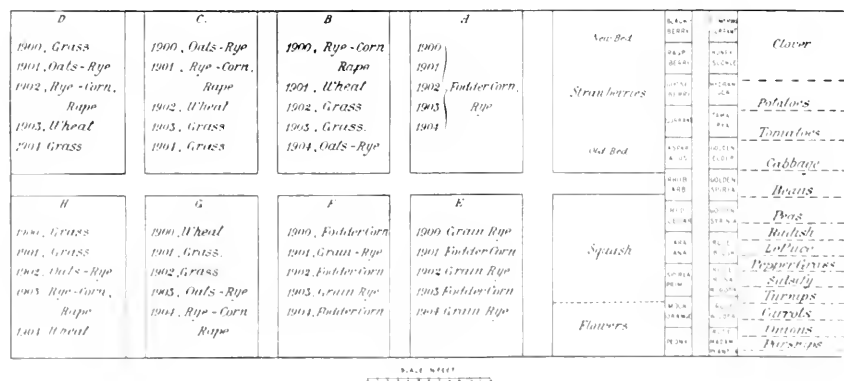 D
1900, Grass
1901, Oats-Rye
1902, Rye-Corn,
Rape
1903, Wheat
1904 Grass
C
1900, Oats-Rye
1901, Rye-Corn,
Rape
1902, Wheat
1903, Grass
1904, Grass
B
1900, Rye-Corn
Rape
1901, Wheat
1902, Grass
1903, Grass.
1904, Oats-Rye
A
1900
1901
1902 Fodder Corn,
1903 Rye
1904
New Bed
Strawberries
Old Bed
H
1900, Grass
1901, Grass
1902, Oats-Rye
1903 Rye-Corn,
Rape
1904 Wheat
G
1900, Wheat
1901, Grass.
1902, Grass
1903, Oats-Rye
1904, Rye-Corn
Rape
F
1900, Fodder Corn
1901, Grain-Rye
1902, Fodder Corn
1903, Grain Rye
1904, Fodder Corn
E
1900 Grain Rye
1901 Fodder Corn
1902 Grain Rye
1903 Fodder Corn
1904 Grain Rye
Squash
Flowers
BLACK
BERRY
RASP
BERRY
CURRANT
ASPAR
AGUS
RHUB
ARB
RED
CEDAR
SPIREA
MOCK
ORANGE
PEONY
GOLDEN
ELDER
GOLDEN
SPIREA
Clover
Potatoes
Tomatoes
Cabbage
Beans
Peas
Radish
Lettuce
Pepper Grass
Salsify
Turnips
Carrots
Onions
Parsnips
SCALE IN FEET